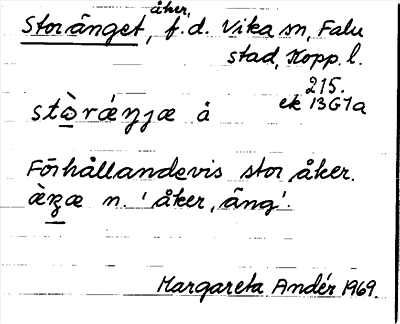 åker,
Storänget, f.d. Vika sn, Falu
stad, Kopp. l.
215.
ek 13G1a
stɷ̀ráŋjæ å
Förhållandevis stor åker.
n. 'åker, äng'.
Margareta Andér 1969.